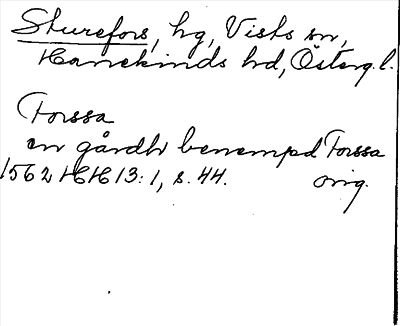 Sturefors, hg, Vists sn,
Hanekinds hd, Österg.l.
Forssa
en gårdh benempd Forssa
1562 HH 13:1, s. 44. orig.